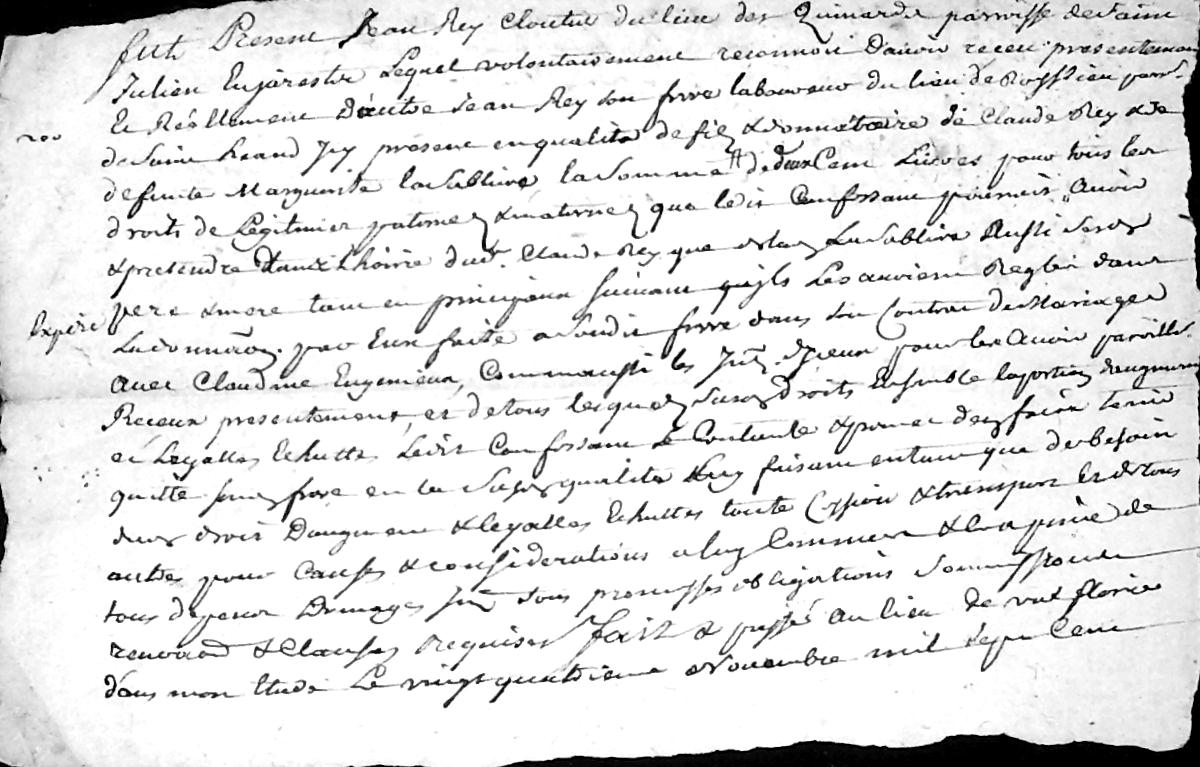 fut Present Jean Rey Cloutier du lieu des Quinards parroisse de Saint
Julien En jarestz Lequel volontairement reconnoit d'avoir receu presentement
200
Et Réellement D'autre Jean Rey son frere laboureur du lieu de parr.
de Saint heand Icy present en qualité de filz & donnataire de Claude Rey & de
defunte Marguerite la Sablière, la Somme de deux Cent Livres pour tous les
droits de Légitimes paternelz & maternelz que ledit Confessant pourroit avoir
& pretendre dans l'hoirie dud. Claude Rey que de la Sablière Ausdits
père & mere tant en principaux suivant quils Les avoient Reglés dans
Expédié
La donnāon. par Eux faite a sondit frere dans son Contrat de Mariage
avec Claudine Eugenieux, Comm'aussi les d'Iceux pour les avoir
Receux presentement, et de tous lesquelz Susdz droits Ensemble la portion d'augment
et Légattz Echuttes Ledit Confessant Se Contente & promet d'en faire tenir
quitte sond. frere en la Susd. qualité & luy faisant en tant que de besoin
desd. droit D'augment & legattes Echuttes toute Cession & transport Et de tous
autres pour Causes & considerations a luy Connues & à la peine de
tous depens Dommages sous promesses obligations Soumissions
renonc & Clauses Requises fait & passé au lieu de
dans mon Etude Le vingt quatrieme Novembre mil Sept Cent